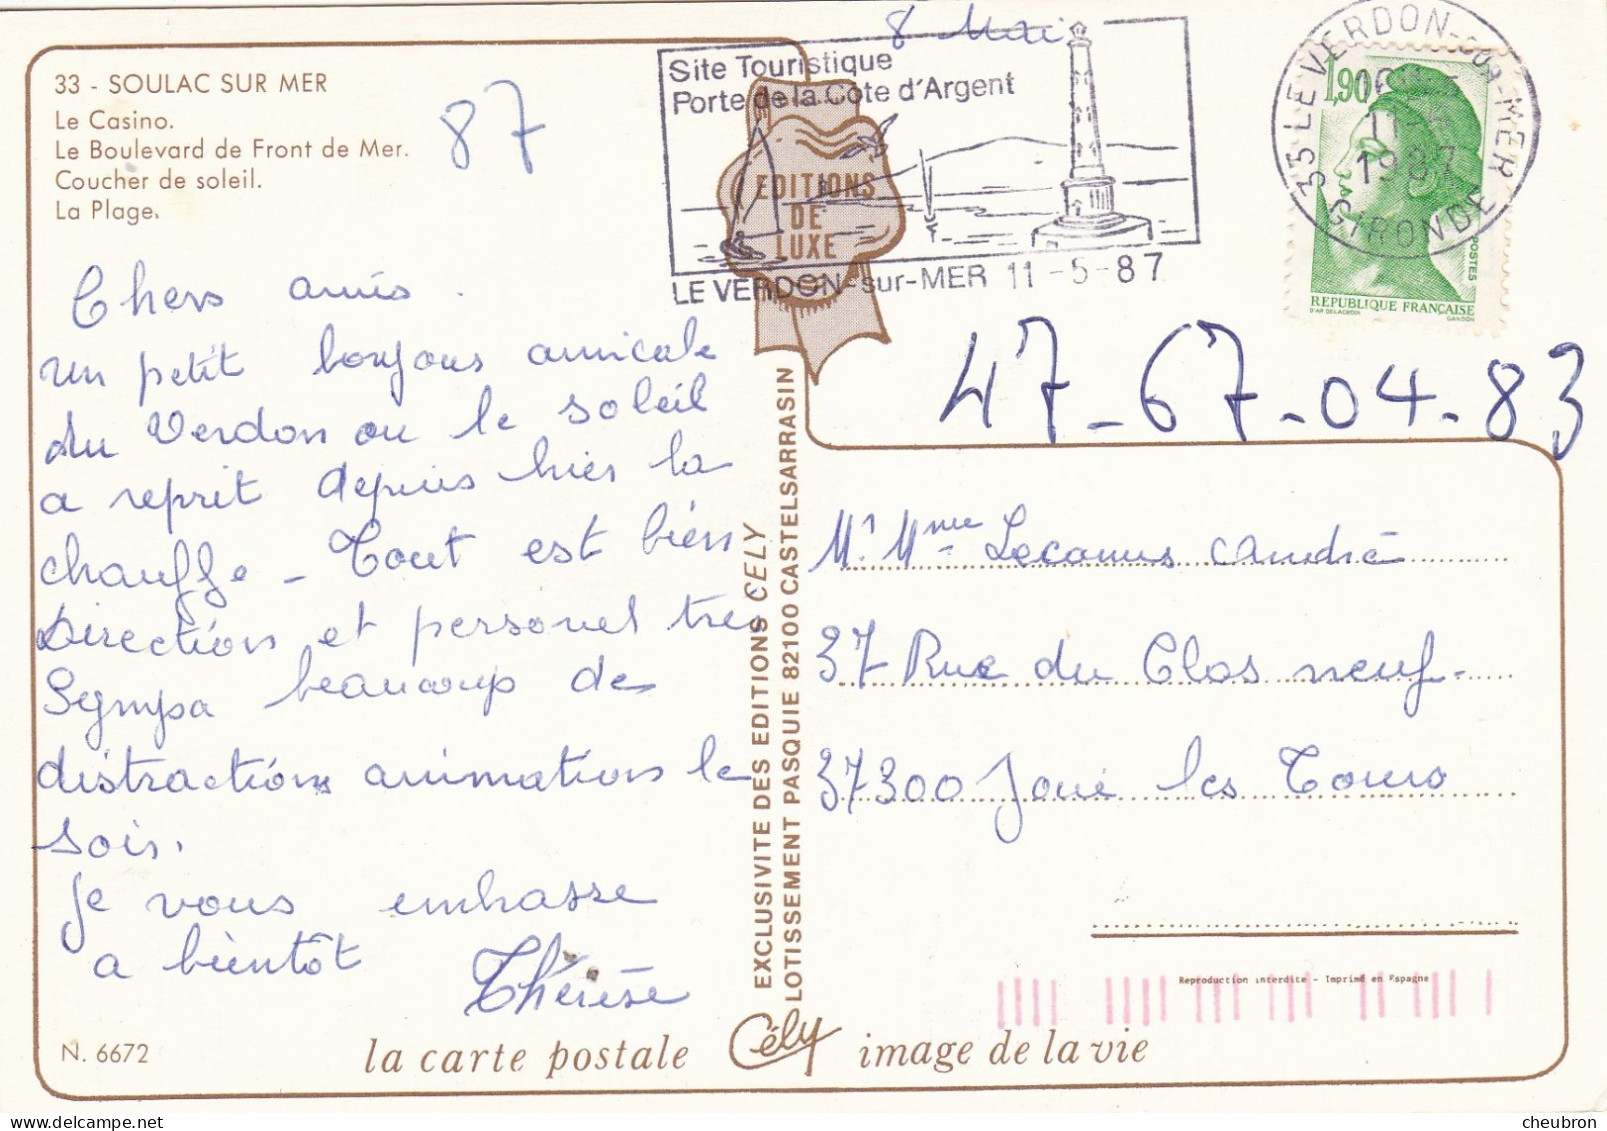 8 Mai
33 - SOULAC SUR MER
Le Casino.
Le Boulevard de Front de Mer.
Coucher de soleil.
La Plage.
87
Site Touristique
Porte de la Côte d'Argent
LE VERDON-sur-MER 11-5-87
EDITIONS
DE
LUXE
33 LE VERDON-SUR-MER
11-5
1987
GIRONDE
1,90
POSTES
REPUBLIQUE FRANÇAISE
D'AP. DELACROIX GANDON
47-67-04-83
Chers amis.
un petit bonjour amicale
du Verdon ou le soleil
a reprit depuis hier la
chauffe - Tout est bien
Direction et personel tres
Sympa beaucoup de
distractions animations le
soir.
Je vous embrasse
a bientôt Thérèse
EXCLUSIVITE DES EDITIONS CELY
LOTISSEMENT PASQUIE 82100 CASTELSARRASIN
Mr Mme Lecomus andré
37 Rue du Clos neuf-
37300 Joué les Tours
Reproduction interdite - Imprimé en Espagne
N. 6672
la carte postale Cély image de la vie
cheubron - delcampe.net